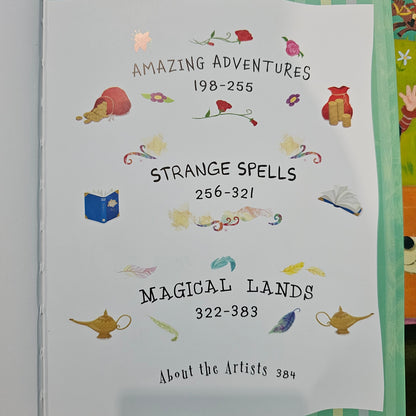 AMAZING ADVENTURES
198-255
STRANGE SPELLS
256-321
MAGICAL LANDS
322-383
About the Artists 384